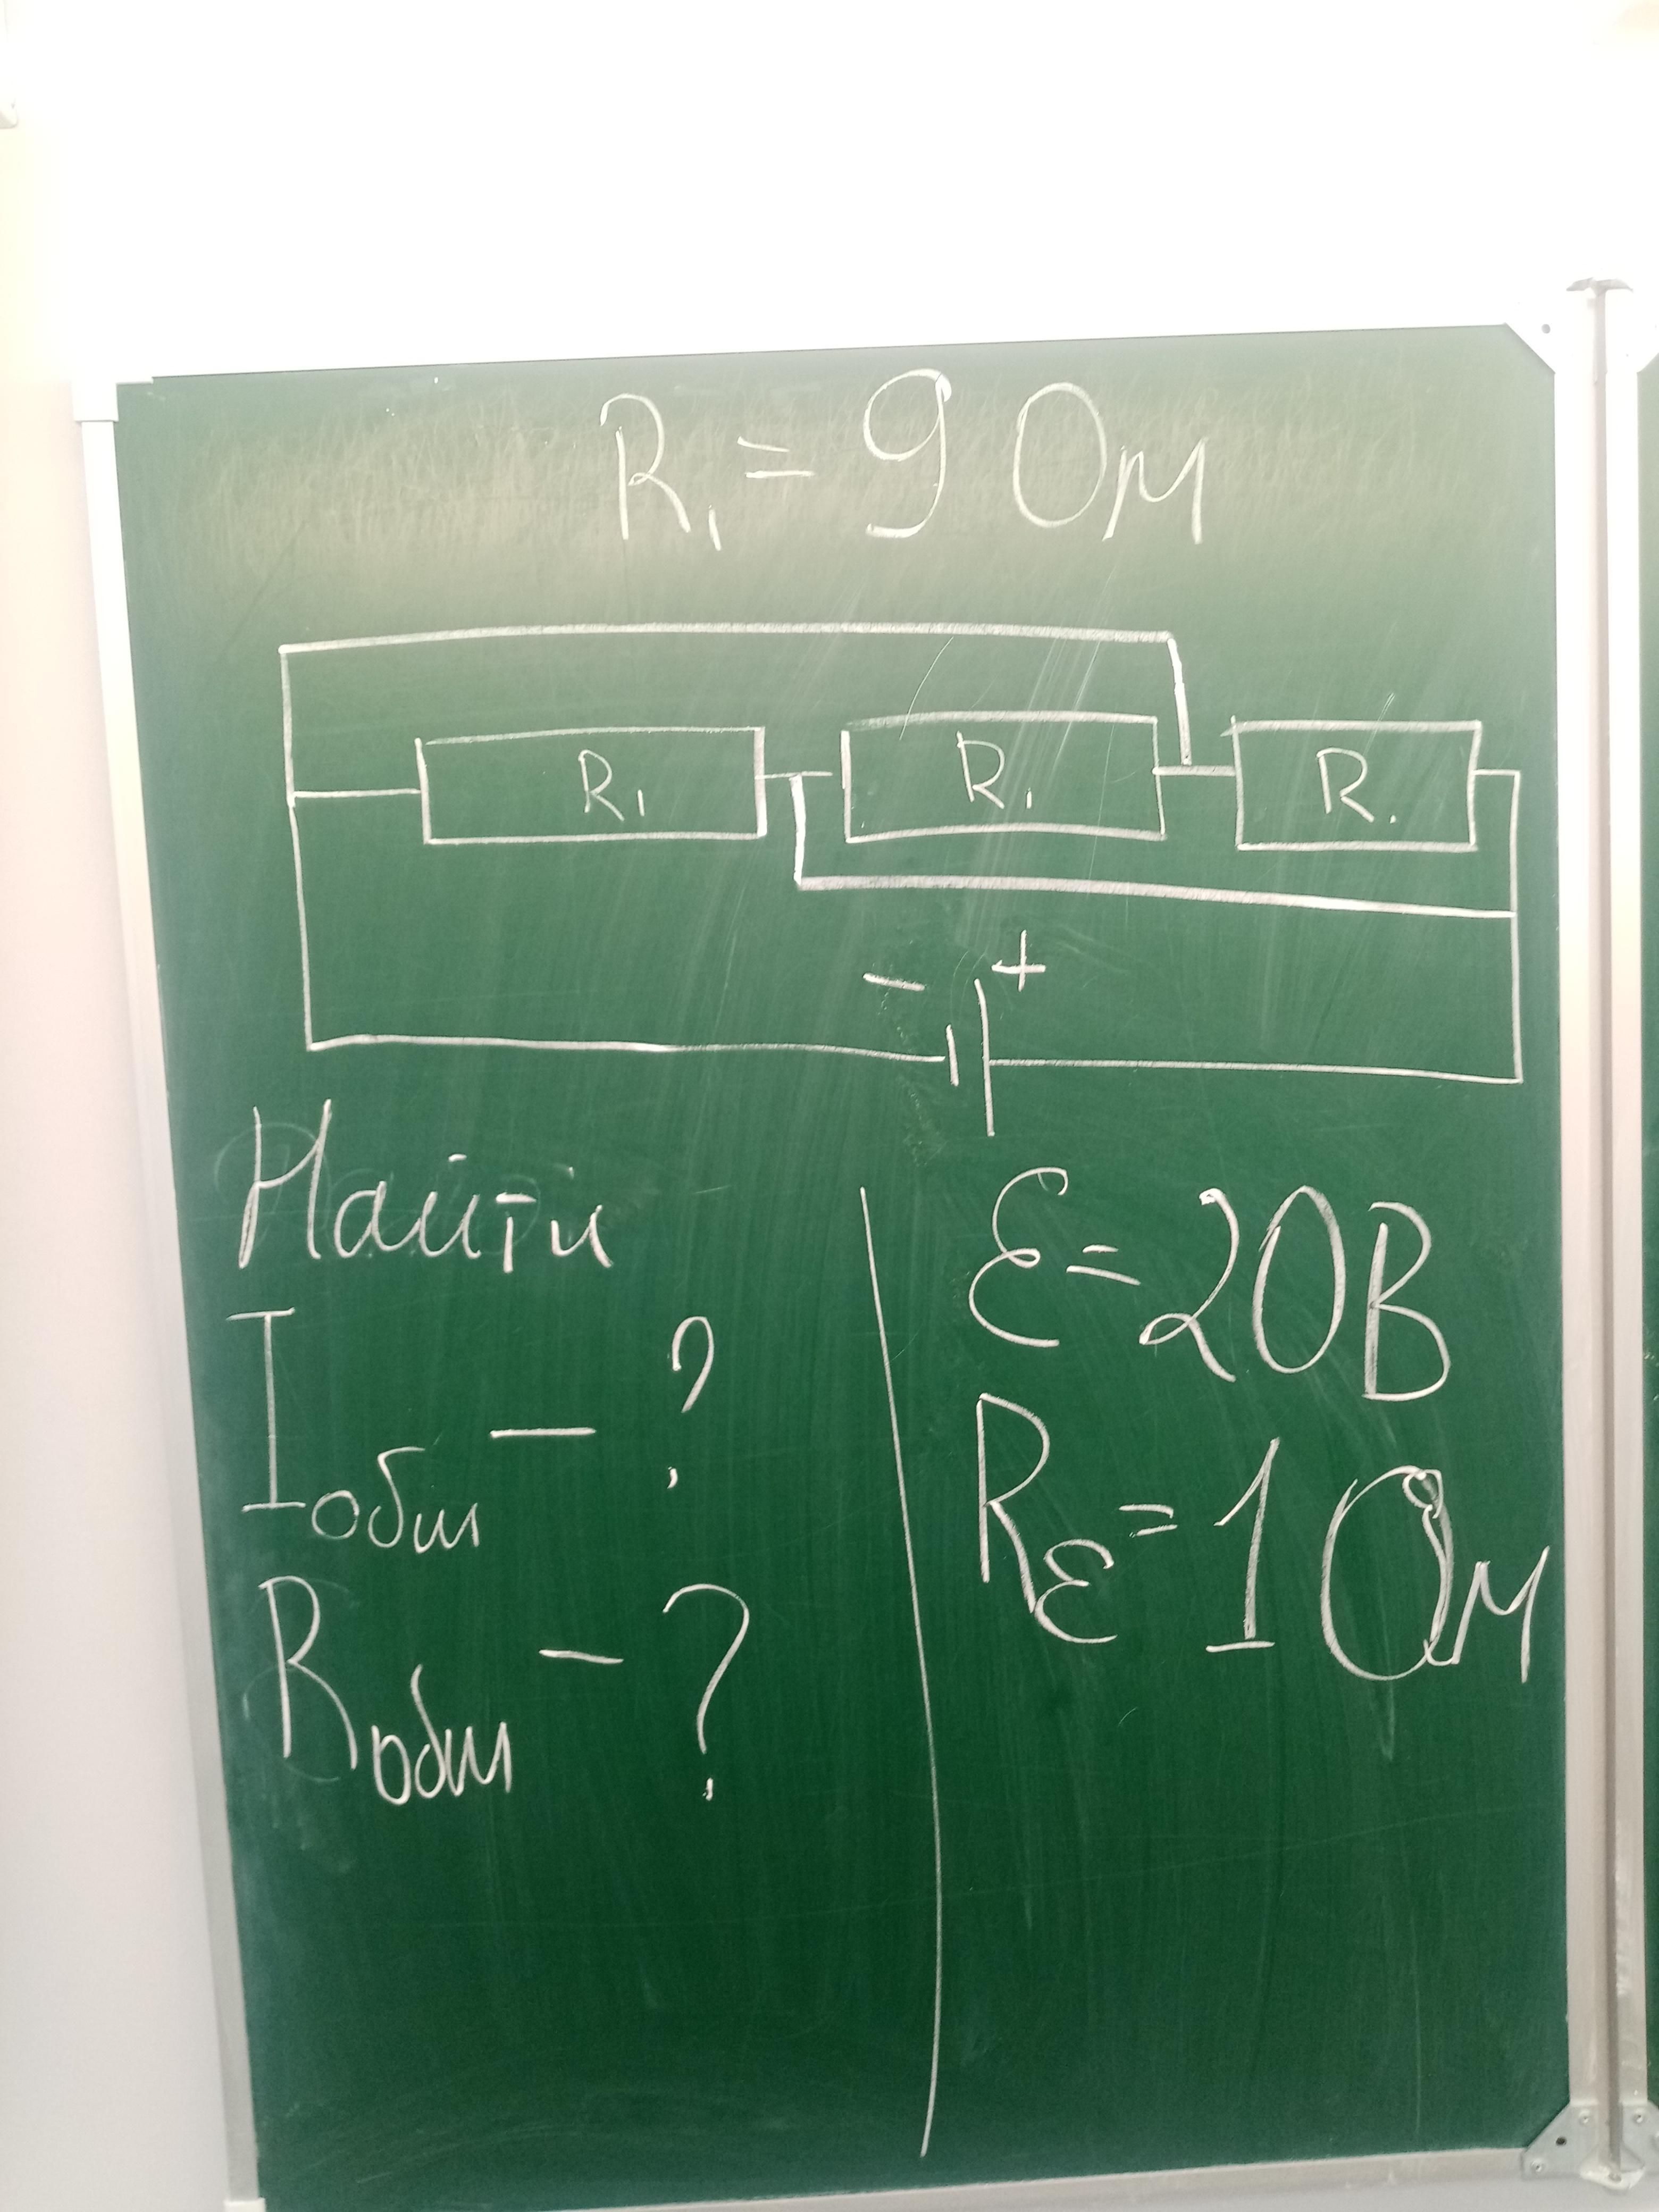 R₁ = 9 Ом
R₁ R₁ R₁
- +
Найти
Iобщ - ?
Rобщ - ?
ℰ = 20 В
Rε = 1 Ом